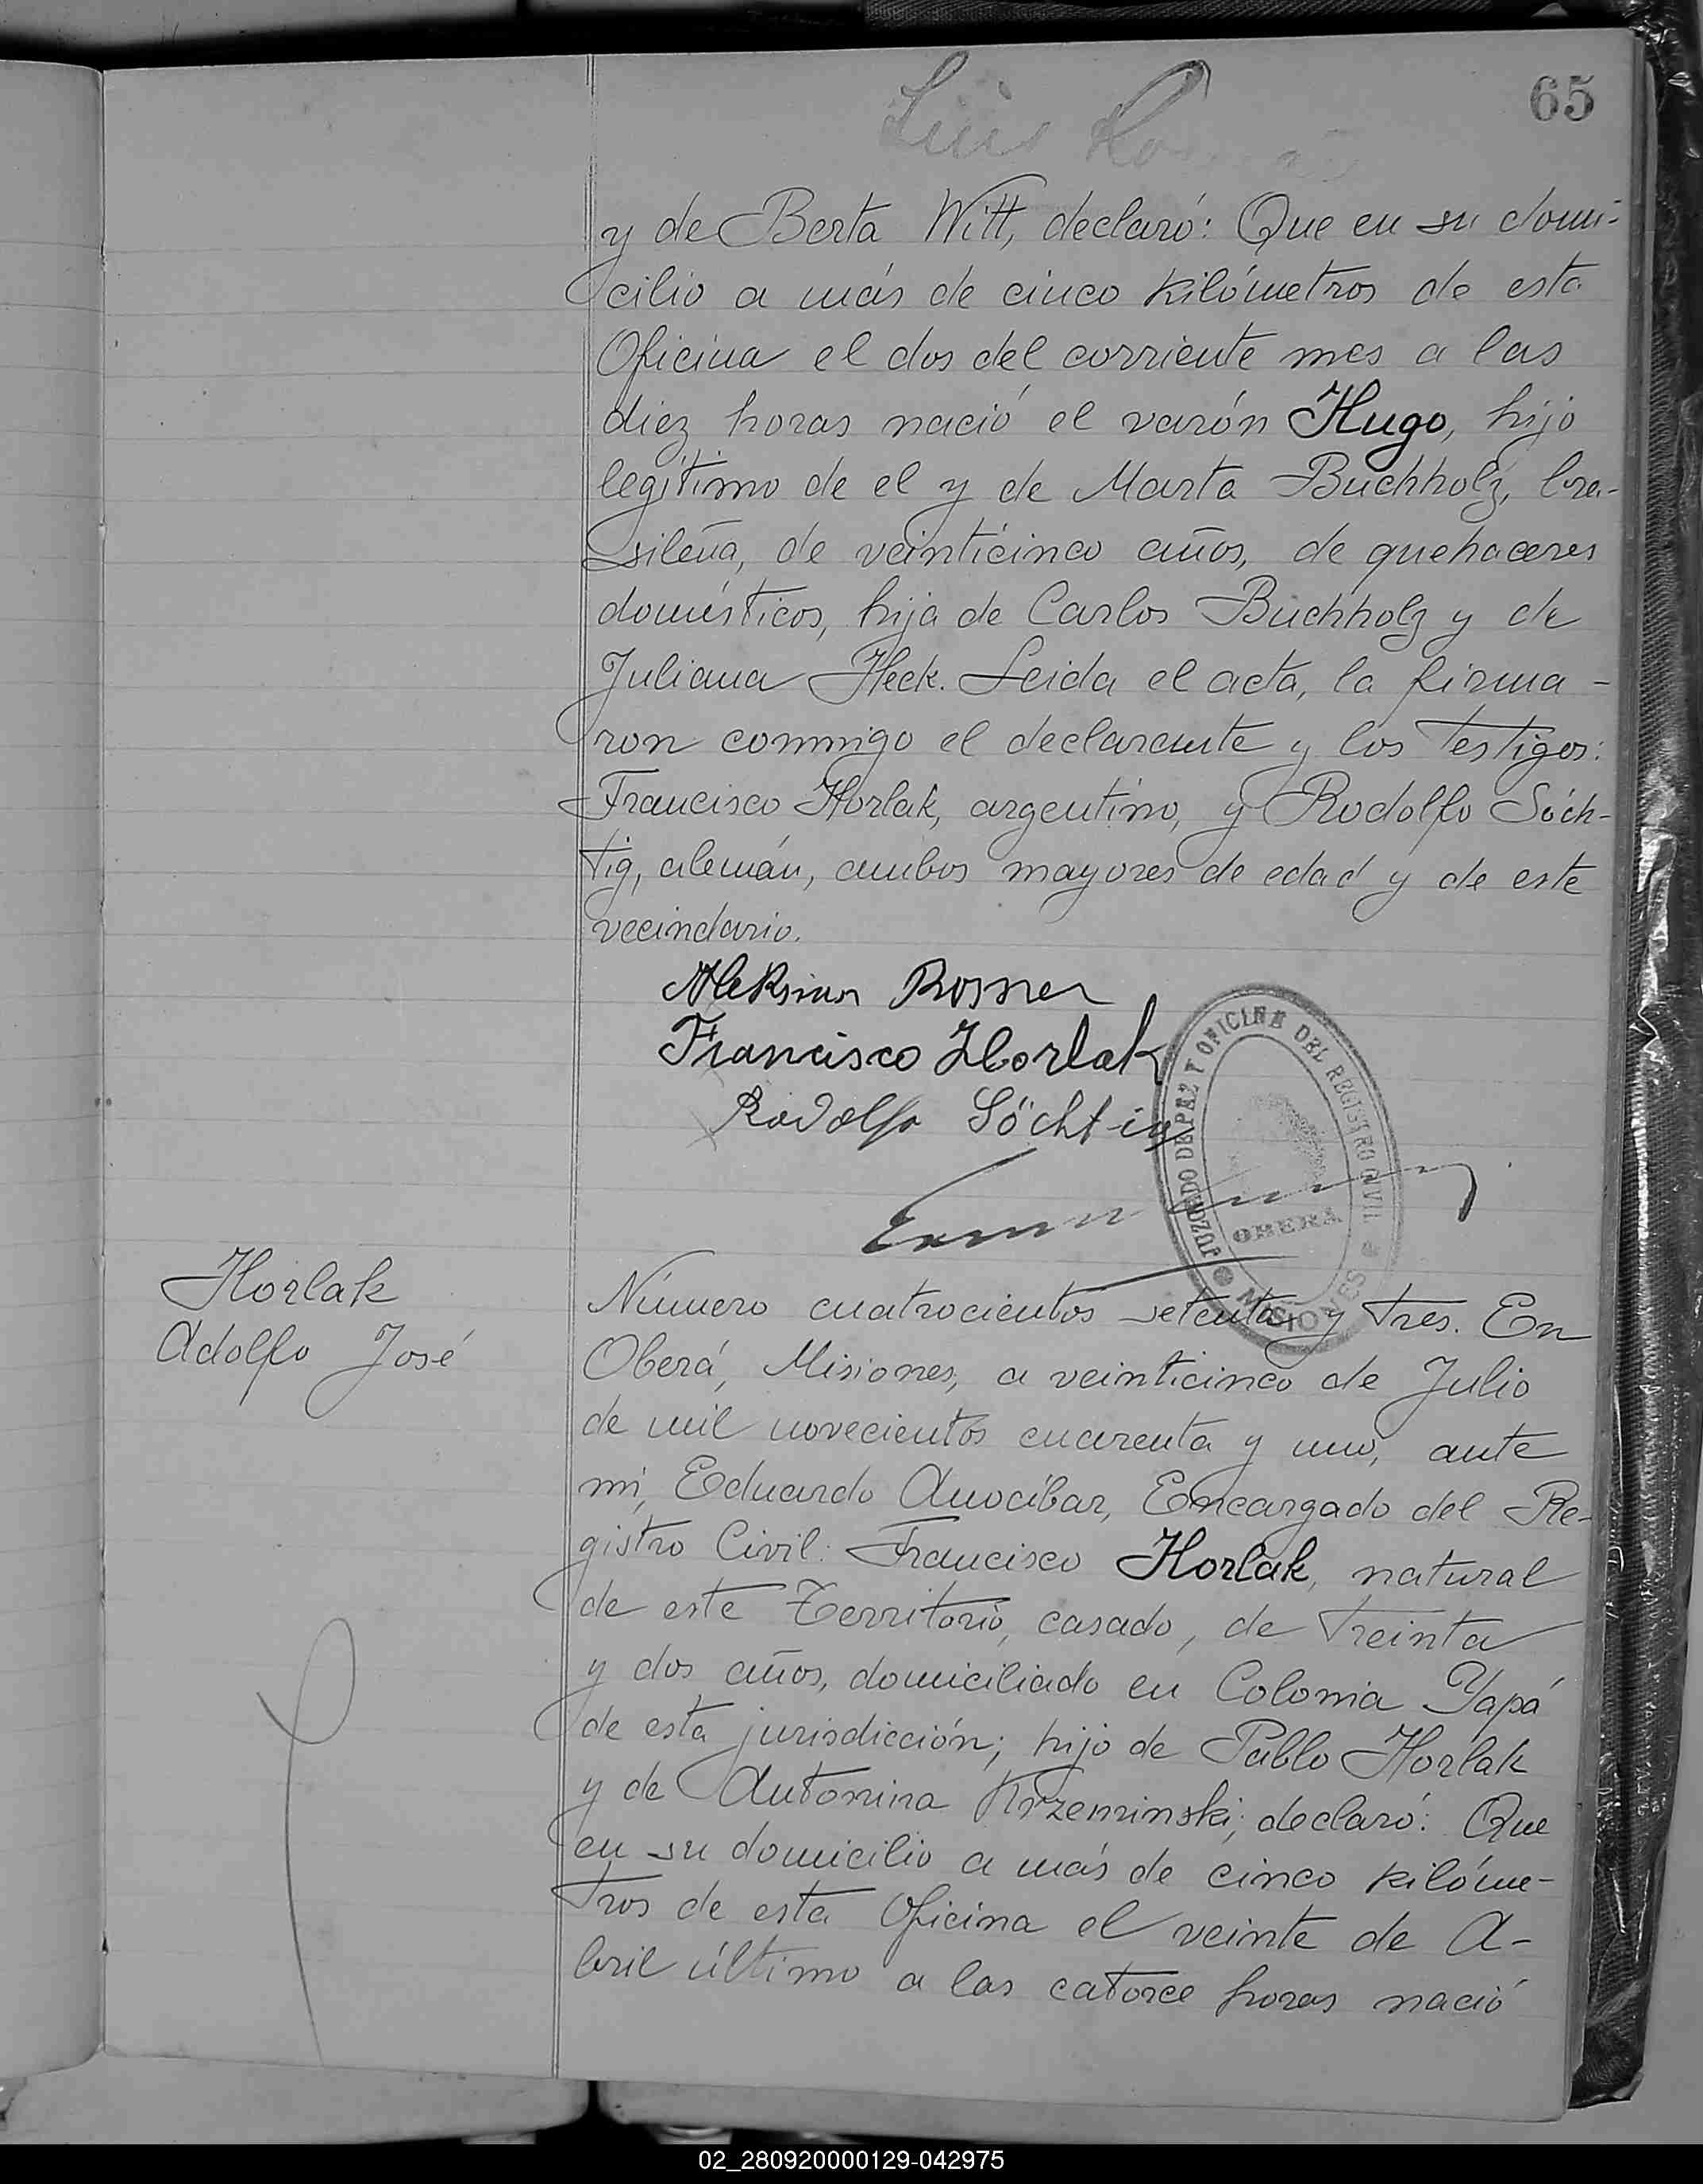 65
Luis
y de Berta Witt, declaró: Que en su domi-
cilio a más de cinco kilómetros de esta
Oficina el dos del corriente mes a las
diez horas nació el varón Hugo, hijo
legítimo de el y de Marta Buchholz, bra-
sileña, de veinticinco años, de quehaceres
domésticos, hija de Carlos Buchholz y de
Juliana Heck. Leida el acta, la firma-
ron conmigo el declarante y los testigos:
Francisco Horlak, argentino, y Rodolfo Söch-
tig, alemán, ambos mayores de edad y de este
vecindario.
Rosner
Francisco Horlak
Rodolfo Söchtig
JUZGADO DE PAZ Y OFICINA DEL REGISTRO CIVIL
OBERÁ
MISIONES
Horlak
Adolfo José
Número cuatrocientos setenta y tres. En
Oberá, Misiones, a veinticinco de Julio
de mil novecientos cuarenta y uno, ante
mí, Eduardo Anocíbar, Encargado del Re-
gistro Civil: Francisco Horlak, natural
de este Territorio, casado, de treinta
y dos años, domiciliado en Colonia Yapá
de esta jurisdicción; hijo de Pablo Horlak
y de Antonina Krzeminski; declaró: Que
en su domicilio a más de cinco kilóme-
tros de esta Oficina el veinte de A-
bril último a las catorce horas nació
02_280920000129-042975